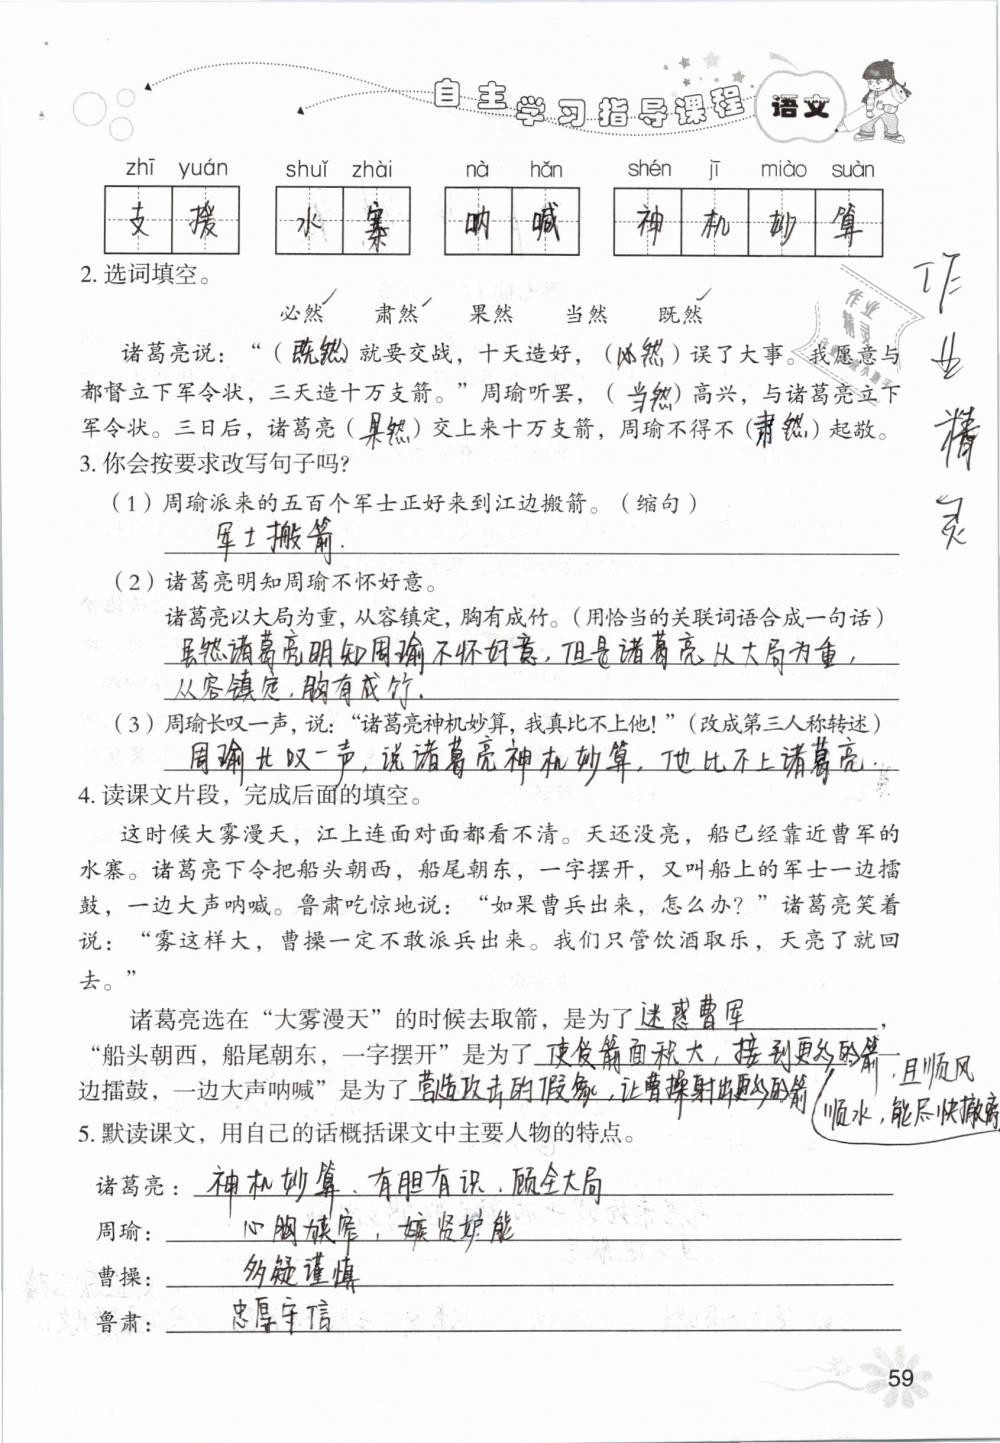 自主学习指导课程 语文
zhī yuán shuǐ zhài nà hǎn shén jī miào suàn
支援 水寨 呐喊 神机妙算
2. 选词填空。
必然 肃然 果然 当然 既然
诸葛亮说：“（既然）就要交战，十天造好，（必然）误了大事。我愿意与
都督立下军令状，三天造十万支箭。”周瑜听罢，（当然）高兴，与诸葛亮立下
军令状。三日后，诸葛亮（果然）交上来十万支箭，周瑜不得不（肃然）起敬。
作业精灵
作业
精灵
3. 你会按要求改写句子吗？
（1）周瑜派来的五百个军士正好来到江边搬箭。（缩句）
军士搬箭.
（2）诸葛亮明知周瑜不怀好意。
诸葛亮以大局为重，从容镇定，胸有成竹。（用恰当的关联词语合成一句话）
虽然诸葛亮明知周瑜不怀好意，但是诸葛亮从大局为重，
从容镇定，胸有成竹.
（3）周瑜长叹一声，说：“诸葛亮神机妙算，我真比不上他！”（改成第三人称转述）
周瑜长叹一声，说诸葛亮神机妙算，他比不上诸葛亮.
4. 读课文片段，完成后面的填空。
这时候大雾漫天，江上连面对面都看不清。天还没亮，船已经靠近曹军的
水寨。诸葛亮下令把船头朝西，船尾朝东，一字摆开，又叫船上的军士一边擂
鼓，一边大声呐喊。鲁肃吃惊地说：“如果曹兵出来，怎么办？”诸葛亮笑着
说：“雾这样大，曹操一定不敢派兵出来。我们只管饮酒取乐，天亮了就回
去。”
诸葛亮选在“大雾漫天”的时候去取箭，是为了迷惑曹军，
“船头朝西，船尾朝东，一字摆开”是为了使受箭面积大，接到更多的箭，一
且顺风
顺水，能尽快撤离
边擂鼓，一边大声呐喊”是为了营造攻击的假象，让曹操射出更多的箭
5. 默读课文，用自己的话概括课文中主要人物的特点。
诸葛亮：神机妙算、有胆有识、顾全大局
周瑜：心胸狭窄，嫉贤妒能
曹操：多疑谨慎
鲁肃：忠厚守信
59